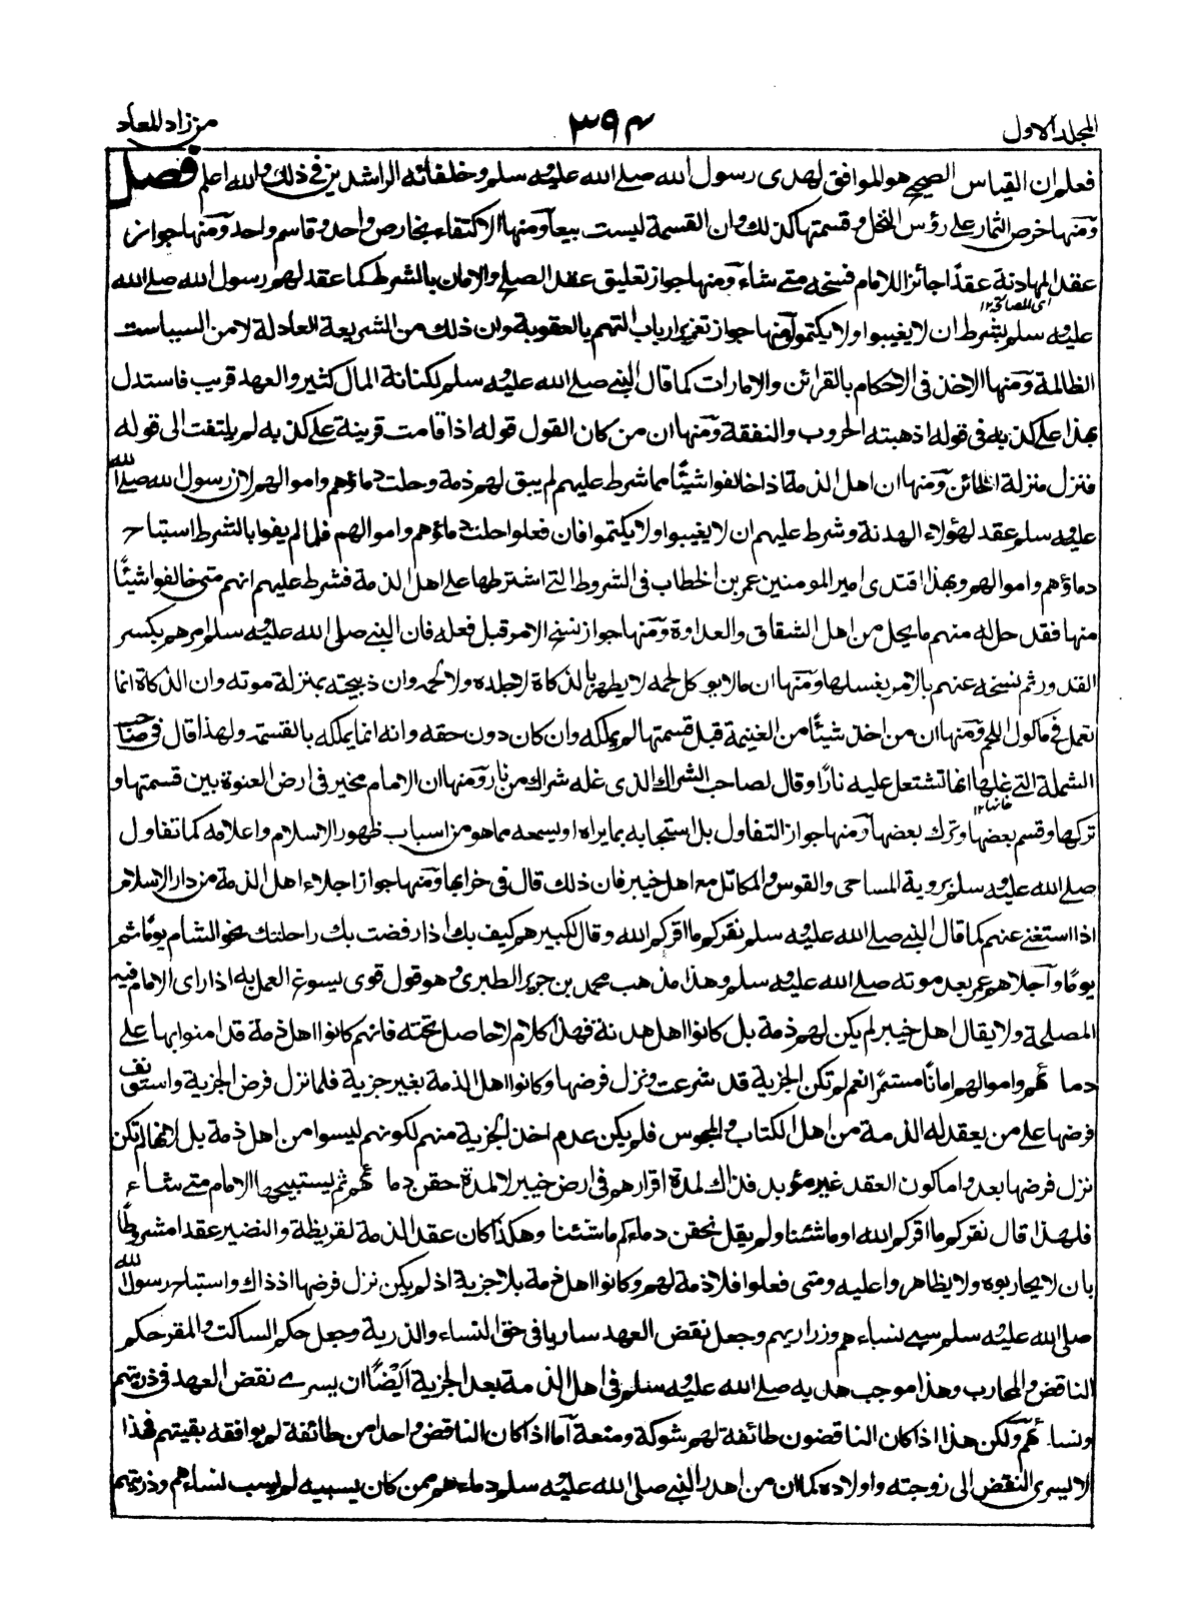 المجلد الاول
٣٩٤
من زاد المعاد
فعلم ان القياس الصحيح هو الموافق لهدى رسول الله صلى الله عليه وسلم وخلفائه الراشدين في ذلك والله اعلم فصل
ومنها خرص الثمار على رؤس النخل وقسمتها كذلك وان القسمة ليست بيعا ومنها الاكتفاء بخارص واحد وقاسم واحد ومنها جواز
عقد المهادنة عقدًا جائزا للامام فسخه متى شاء ومنها جواز تعليق عقد الصلح والامان بالشرط كما عقد لهم رسول الله صلى الله
اى المصالحة ١٢
عليه وسلم بشرط ان لا يغيبوا ولا يكتموا ومنها جواز تعزير ارباب التهم بالعقوبة وان ذلك من الشريعة العادلة لا من السياست
الظالمة ومنها الاخذ في الاحكام بالقرائن والامارات كما قال النبي صلى الله عليه وسلم لكنانة المال كثير والعهد قريب فاستدل
بهذا على كذبه في قوله اذهبته الحروب والنفقة ومنها ان من كان القول قوله اذا قامت قرينة على كذبه لم يلتفت الى قوله
فنزل منزلة الخائن ومنها ان اهل الذمة اذا خالفوا شيئًا مما شرط عليهم لم يبق لهم ذمة وحلت دماؤهم واموالهم لان رسول الله صلى الله
عليه وسلم عقد لهؤلاء الهدنة وشرط عليهم ان لا يغيبوا ولا يكتموا فان فعلوا حلت دماؤهم واموالهم فلما لم يفوا بالشرط استباح
دماؤهم واموالهم وبهذا اقتدى امير المومنين عمر بن الخطاب في الشروط التي اشترطها على اهل الذمة فشرط عليهم انهم متى خالفوا شيئًا
منها فقد حل له منهم ما يحل من اهل الشقاق والعداوة ومنها جواز نسخ الامر قبل فعله فان النبي صلى الله عليه وسلم امرهم بكسر
القدور ثم نسخه عنهم بالامر بغسلها ومنها ان مالا يوكل لحمه لا يطهر بالذكاة لا جلده ولا لحمه وان ذبيحته بمنزلة موته وان الذكاة انما
تعمل في ماكول اللحم ومنها ان من اخذ شيئًا من الغنيمة قبل قسمتها لم يملكه وان كان دون حقه وانه انما يملكه بالقسمة ولهذا قال في صاحب
الشملة التي غلها انها تشتعل عليه نارًا وقال لصاحب الشراك الذى غله شراك من نار ومنها ان الامام مخير في ارض العنوة بين قسمتها و
تركها وقسم بعضها وترك بعضها ومنها جواز التفاول بل استحبابه بما يراه او يسمعه مما هو من اسباب ظهور الاسلام واعلامه كما تفاول
صلى الله عليه وسلم بروية المساحى والقوس والمكاتل مع اهل خيبر فان ذلك قال في خرابها ومنها جواز اجلاء اهل الذمة من دار الاسلام
اذا استغنى عنهم كما قال النبي صلى الله عليه وسلم نقركم ما اقركم الله وقال لكبيرهم كيف بك اذا رقصت بك راحلتك نحو الشام يومًا ثم
يومًا واجلاهم عمر بعد موته صلى الله عليه وسلم وهذا مذهب محمد بن جرير الطبرى وهو قول قوى يسوغ العمل به اذا راى الامام فيه
المصلحة ولا يقال اهل خيبر لم يكن لهم ذمة بل كانوا اهل هدنة فهذا كلام لا حاصل تحته فانهم كانوا اهل ذمة قد امنوا بها على
دمائهم واموالهم امانًا مستمرًا نعم لم تكن الجزية قد شرعت ونزل فرضها وكانوا اهل الذمة بغير جزية فلما نزل فرض الجزية واستونف
فرضها على من يعقد له الذمة من اهل الكتاب والمجوس فلم يكن عدم اخذ الجزية منهم لكونهم ليسوا من اهل ذمة بل لانها لم تكن
نزل فرضها بعد واما كون العقد غير مؤبد فذاك لمدة اقرارهم في ارض خيبر لا لمدة حقن دمائهم ثم يستبيحها الامام متى شاء
فلهذا قال نقركم ما اقركم الله او ما شئنا ولم يقل نحقن دماءكم ما شئنا وهكذا كان عقد الذمة لقريظة والنضير عقدا مشروطًا
بان لا يحاربوه ولا يظاهروا عليه ومتى فعلوا فلا ذمة لهم وكانوا اهل ذمة بلا جزية اذ لم يكن نزل فرضها اذ ذاك واستباح رسول الله
صلى الله عليه وسلم سبي نساءهم وذراريهم وجعل نقض العهد ساريا في حق النساء والذرية وجعل حكم الساكت والمقر حكم
الناقض والمحارب وهذا موجب هديه صلى الله عليه وسلم في اهل الذمة بعد الجزية ايضًا ان يسرى نقض العهد في ذريتهم
ونسائهم ولكن هذا اذا كان الناقضون طائفة لهم شوكة ومنعة اما اذا كان الناقض واحدا من طائفة لم يوافقه بقيتهم فهذا
لا يسرى النقض الى زوجته واولاده كما ان من اهدر النبي صلى الله عليه وسلم دماءهم ممن كان يسبيه لم يسب نساءهم وذريتهم